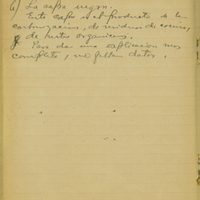 6) La capa negra.
Esta capa es el producto de la
carbonizacion, de residuos de cocina,
de restos organicos.
Para dar una explicacion mas
completa, me faltan datos.